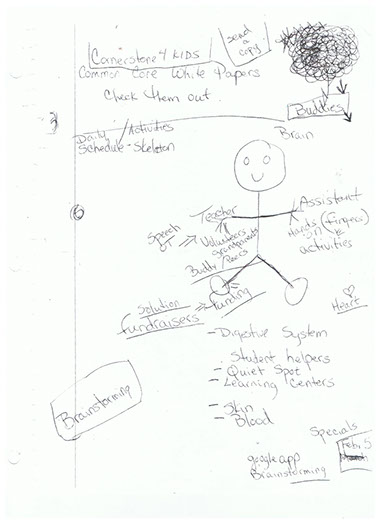 Cornerstone 4 KIDS
send a copy
Common Core White Papers
Check them out.
Buddies
Brain
Daily / Activities
Schedule - Skeleton
Teacher
Assistant
Hands (fingers)
on
activities
Speech
OT
Volunteers
Grandparents
Buddy / Peers
Solution
Funding
fundraisers
Heart
- Digestive System
Student helpers
- Quiet Spot
- Learning Centers
- Skin
- Blood
Brainstorming
Specials
Feb. 5
google app
Brainstorming